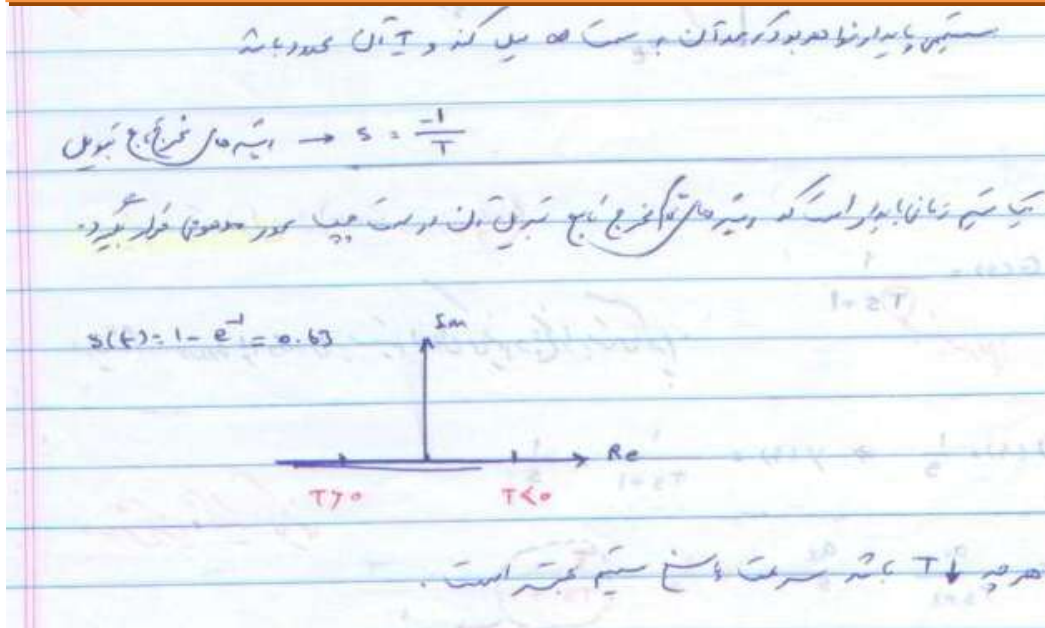 سیستمی پایدار خواهد بود که حد آن به سمت ∞ میل کند و آن محدود باشد
ریشه های مخرج تابع تبدیل → s = -1/T
یک سیستم زمانی پایدار است که ریشه های مخرج تابع تبدیل آن در سمت چپ محور موهومی قرار بگیرد.
y(t) = 1 - e^-1 = 0.63
Im
Re
T>0 T<0
هر چه T↓ باشد سرعت پاسخ سیستم بیشتر است.